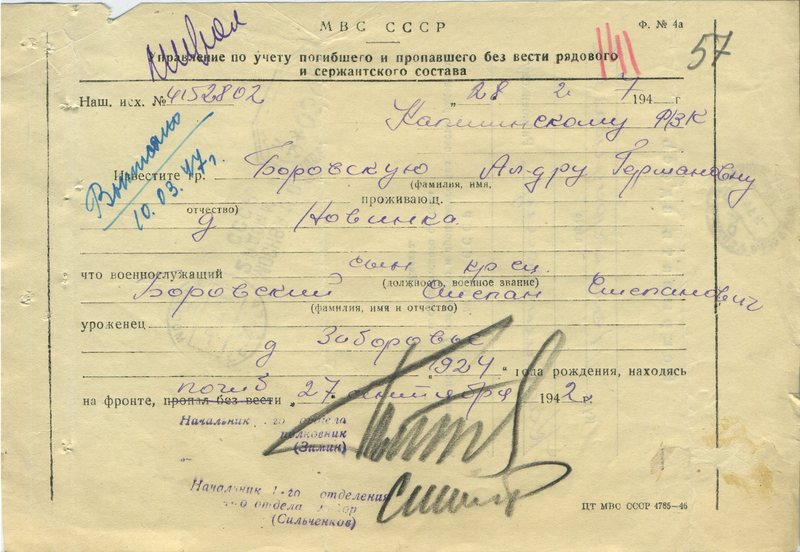 МВС СССР
Ф. № 4а
Управление по учету погибшего и пропавшего без вести рядового
и сержантского состава
57
Наш. исх. № 4152802
„28 2 1947 г
Капшинскому РВК
Выписано
10.03.47г.
Известите гр. Боровскую Ал-дру Германовну
(фамилия, имя,
проживающ.
отчество)
д Новинка
что военнослужащий сын кр-ец.
(должность, военное звание)
Боровский Степан Степанович
(фамилия, имя и отчество)
уроженец
д Заборовье
1924 года рождения, находясь
погиб
на фронте, пропал без вести „27 сентября 1942 г.
Начальник 1-го отдела
полковник
(Зимин)
Начальник 1-го отделения
отдела майор
(Сильченков)
ЦТ МВС СССР 4785—46